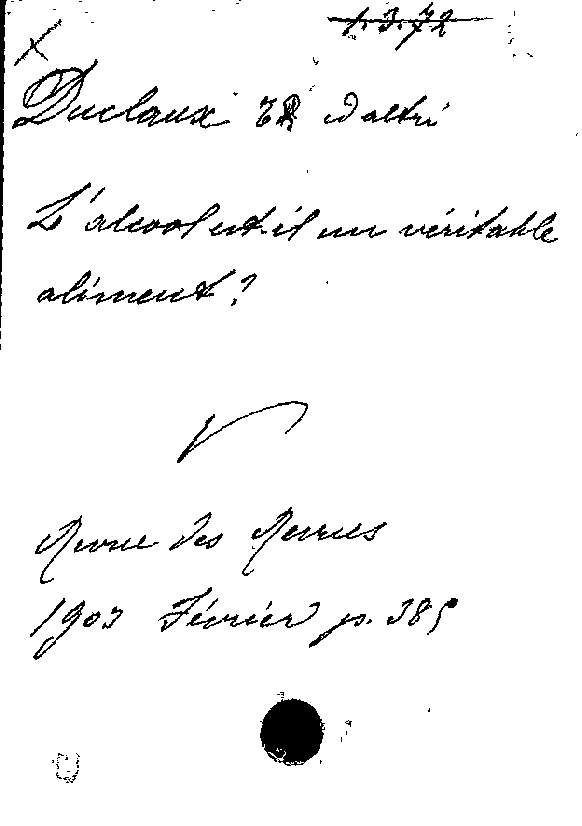 1.3.72
Duclaux ed altri
L'alcool est-il un véritable
aliment?
Revue des Revues
1903 Février p. 385